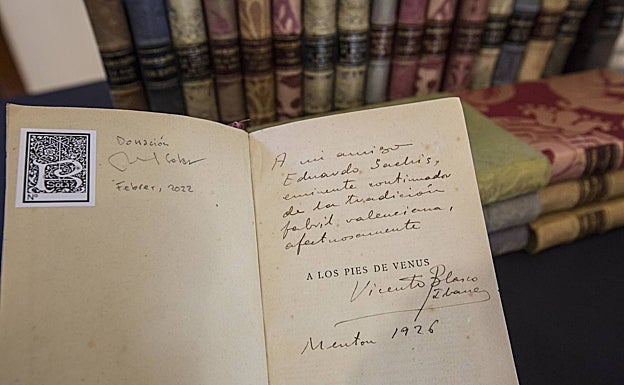 Donación
Febrer, 2022
B
A mi amigo
Eduardo
eminente continuador
de la tradición
fabril valenciana,
afectuosamente
A LOS PIES DE VENUS
Vicente Blasco
Ibanez
Menton 1926